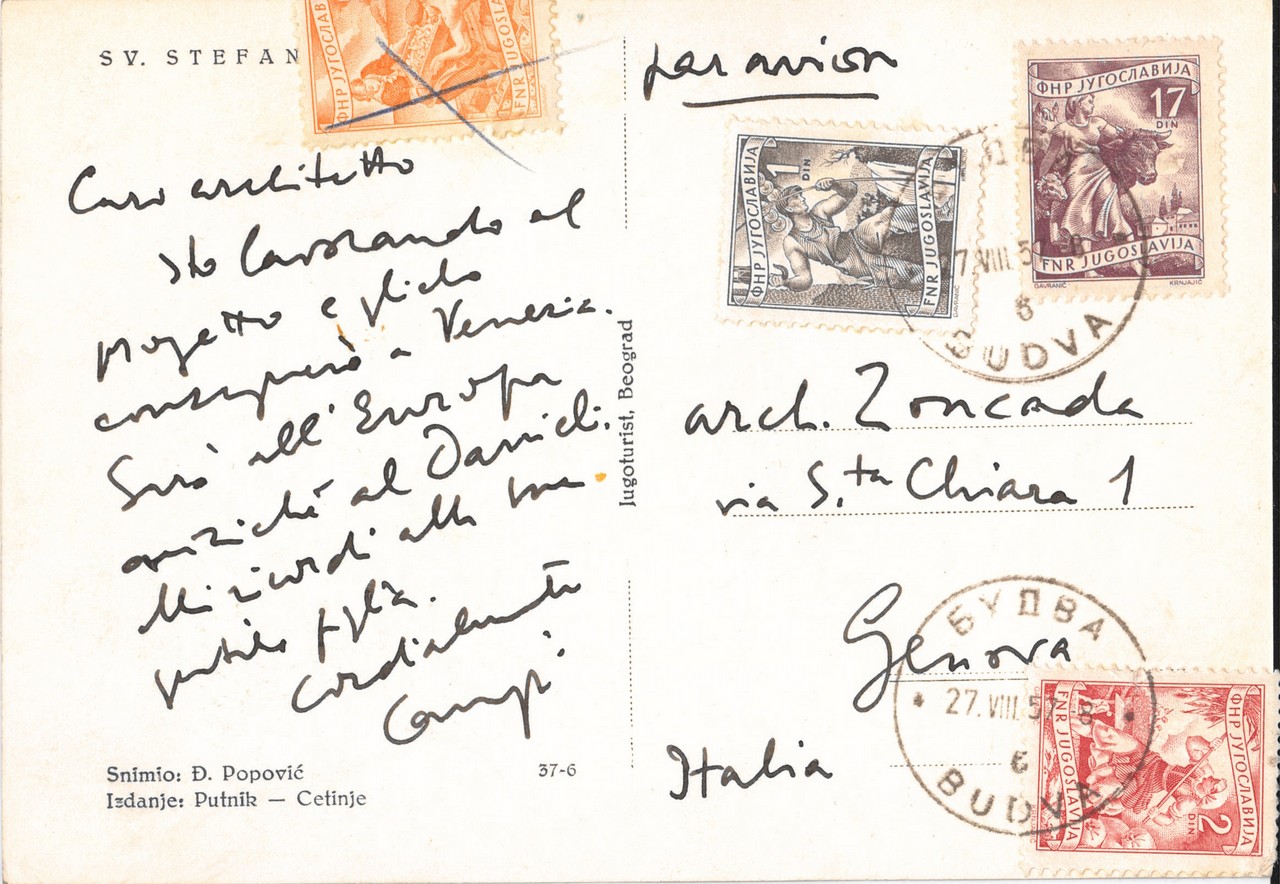 SV. STEFAN
ФНР ЈУГОСЛАВИЈА
FNR JUGOSLAVIJA
Caro architetto
sto lavorando al
progetto e glielo
consegnerò a Venezia.
Sarò all'Europa
anziché al Danieli.
Mi ricordi alla sua
gentile figlia.
Cordialmente
Snimio: Đ. Popović
Izdanje: Putnik — Cetinje
37-6
Jugoturist, Beograd
par avion
ФНР ЈУГОСЛАВИЈА
1 DIN
FNR JUGOSLAVIJA
ФНР ЈУГОСЛАВИЈА
17 DIN
FNR JUGOSLAVIJA
GAVRANIĆ KRNJAJIĆ
27.VIII.57 8
6
BUDVA
arch. Zoncada
via S.ta Chiara 1
Genova
Italia
БУДВА
27.VIII.57 8
6
BUDVA
FNR JUGOSLAVIJA
2 DIN
ФНР ЈУГОСЛАВИЈА